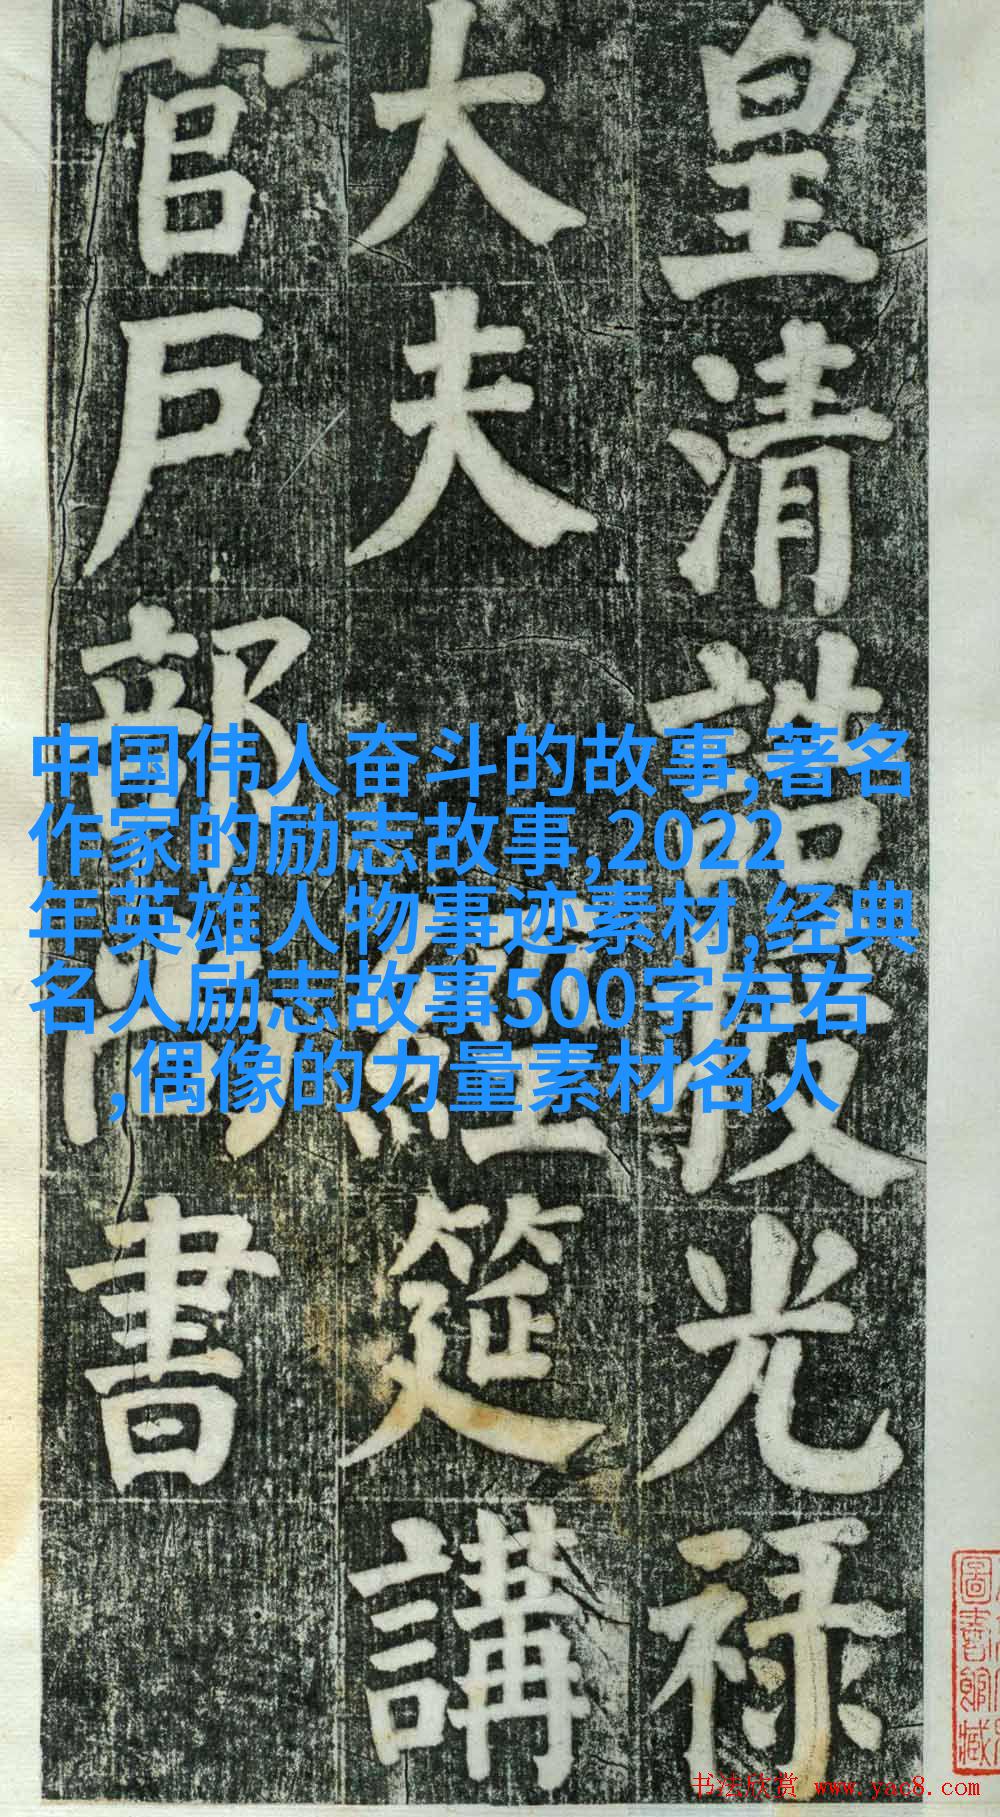 皇清誥授光祿
大夫經筵講
官戶部尚書
中国伟人奋斗的故事,著名
作家的励志故事,2022
年英雄人物事迹素材,经典
名人励志故事500字左右
,偶像的力量素材名人
圖書館藏
书法欣赏 www.yac8.com